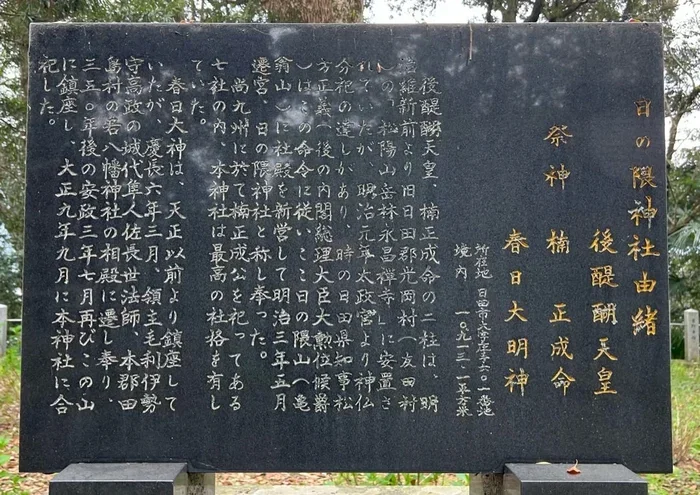 日の隈神社由緒
後醍醐天皇
祭神 楠 正成命
春日大明神
所在地 日田市大字庄手六〇一番地
境内 一〇、九一三・一一平方米
後醍醐天皇、楠正成命の二柱は、明
治維新前より旧日田郡光岡村(友田村
)の「松陽山岳林永昌禅寺」に安置さ
れていたが、明治元年太政官より神仏
分祀の達しがあり、時の日田県知事松
方正義(後の内閣総理大臣大勲位候爵
)はこの命令に従い、ここ日の隈山(亀
翁山)に社殿を新営して明治三年五月
遷宮、日の隈神社と称し奉った。
尚九州に於て楠正成公を祀ってある
七社の内、本神社は最高の社格を有し
ていた。
春日大神は、天正以前より鎮座して
いたが、慶長六年三月、領主毛利伊勢
守高政の城代隼人佐長世法師、本郡田
島村の若八幡神社の相殿に遷し奉り、
三五〇年後の安政三年七月再びこの山
に鎮座し、大正九年九月に本神社に合
祀した。